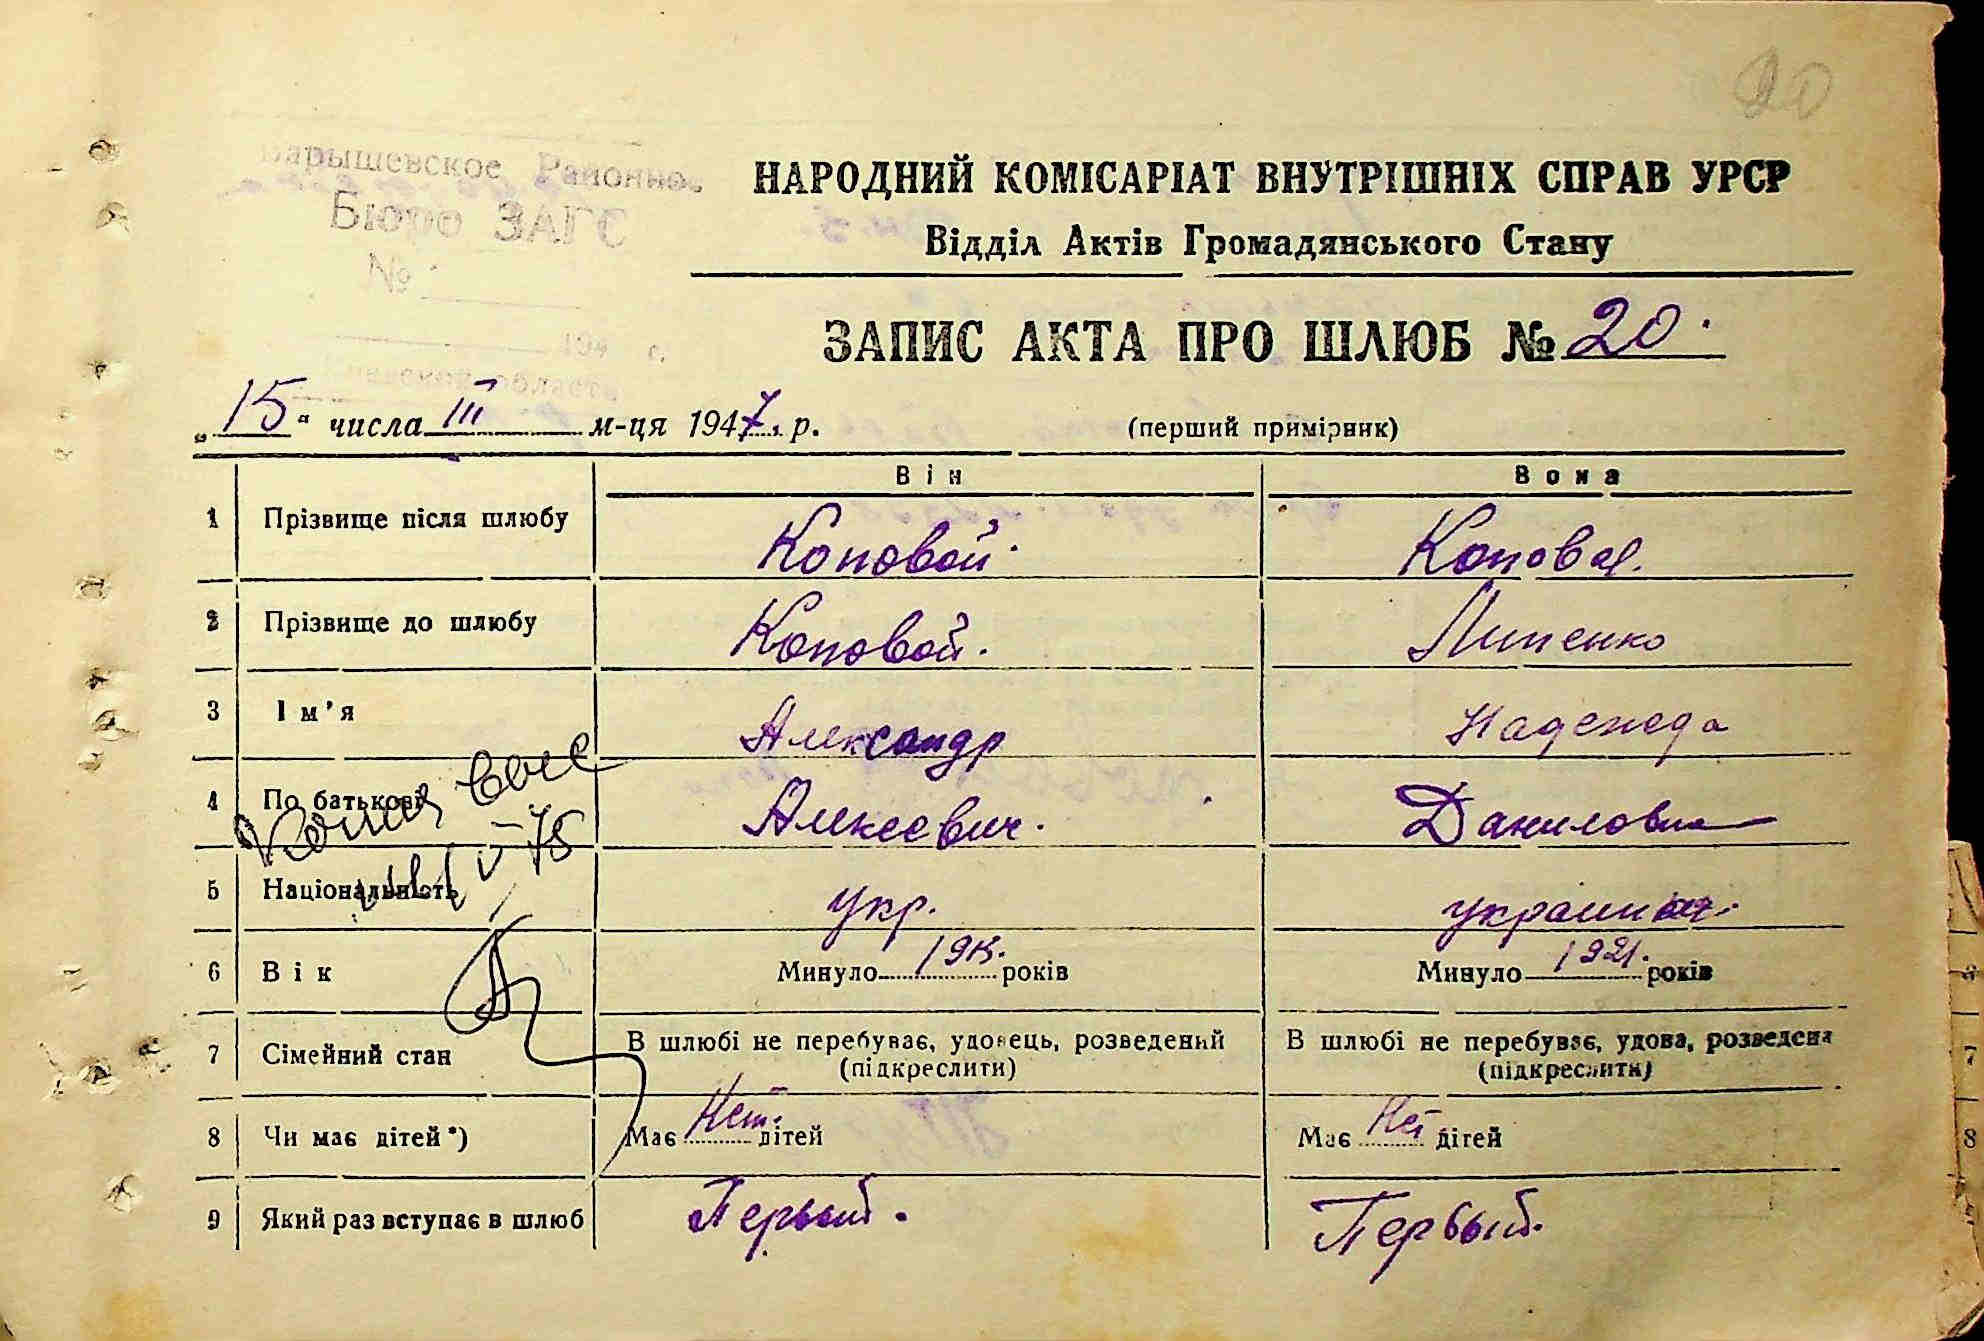 20
Барышевское Районное
Бюро ЗАГС
№
194 г.
Киевской области
НАРОДНИЙ КОМІСАРІАТ ВНУТРІШНІХ СПРАВ УРСР
Відділ Актів Громадянського Стану
ЗАПИС АКТА ПРО ШЛЮБ № 20.
„15" числа III м-ця 1947 р. (перший примірник)
Він Вона
1 Прізвище після шлюбу Коповой. Коповая.
2 Прізвище до шлюбу Коповой. Липенко
3 Ім'я Александр Надежда
4 По батькові Алексеевич. Даниловна
5 Національність укр.
6 Вік Минуло років Минуло 1921. років
7 Сімейний стан В шлюбі не перебуває, удовець, розведений (підкреслити) В шлюбі не перебуває, удова, розведена (підкреслити)
8 Чи має дітей*) Має Нет. дітей Має Нет дітей
9 Який раз вступає в шлюб Первый. Первый.
V-75
7
8